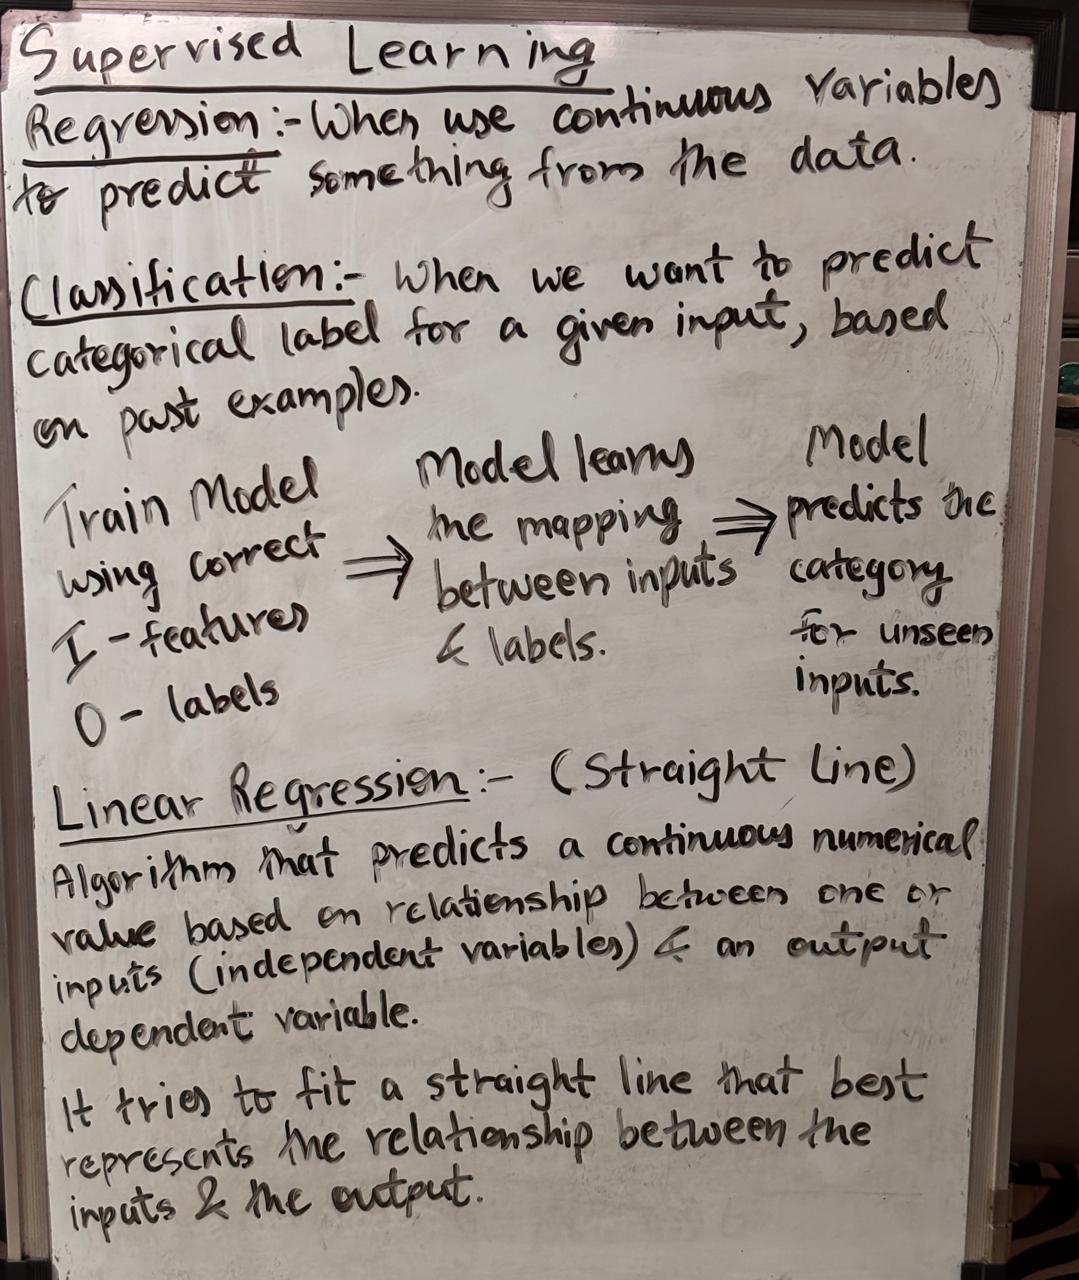 Supervised Learning
Regression :- When use continuous variables
to predict something from the data.
Classification :- When we want to predict
categorical label for a given input, based
on past examples.
Train Model
using correct
I - features
O - labels
⇒
Model learns
the mapping
between inputs
& labels.
⇒
Model
predicts the
category
for unseen
inputs.
Linear Regression :- (Straight Line)
Algorithm that predicts a continuous numerical
value based on relationship between one or
inputs (independent variables) & an output
dependent variable.
It tries to fit a straight line that best
represents the relationship between the
inputs & the output.